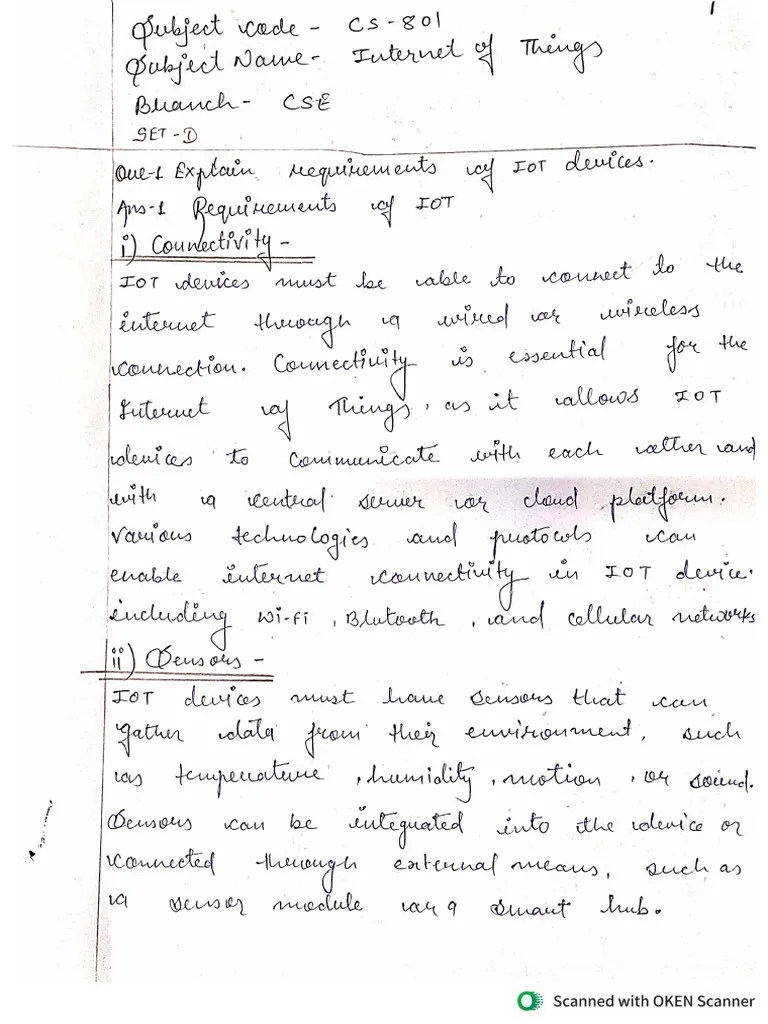 1
Subject code - CS-801
Subject Name - Internet of Things
Branch - CSE
SET-D
Que-1 Explain requirements of IOT devices.
Ans-1 Requirements of IOT
i) Connectivity -
IOT devices must be able to connect to the
internet through a wired or wireless
connection. Connectivity is essential for the
Internet of Things, as it allows IOT
devices to communicate with each other and
with a central server or cloud platform.
Various technologies and protocols can
enable internet connectivity in IOT device.
including Wi-Fi, Blutooth, and cellular networks
ii) Sensors -
IOT devices must have sensors that can
gather data from their environment, such
as temperature, humidity, motion, or sound.
Sensors can be integrated into the device or
connected through external means, such as
a sensor module or a smart hub.
Scanned with OKEN Scanner